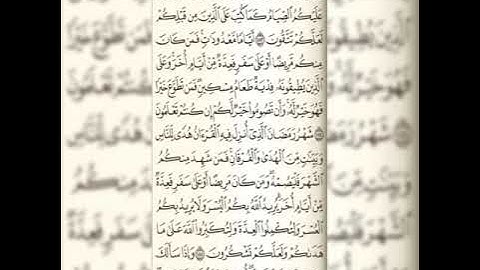 عَلَيْكُمُ ٱلصِّيَامُ كَمَا كُتِبَ عَلَى ٱلَّذِينَ مِن قَبْلِكُمْ
لَعَلَّكُمْ تَتَّقُونَ ١٨٣ أَيَّامًا مَّعْدُودَٰتٍ فَمَن كَانَ
مِنكُم مَّرِيضًا أَوْ عَلَىٰ سَفَرٍ فَعِدَّةٌ مِّنْ أَيَّامٍ أُخَرَ وَعَلَى
ٱلَّذِينَ يُطِيقُونَهُۥ فِدْيَةٌ طَعَامُ مِسْكِينٍ فَمَن تَطَوَّعَ خَيْرًا
فَهُوَ خَيْرٌ لَّهُۥ وَأَن تَصُومُوا۟ خَيْرٌ لَّكُمْ إِن كُنتُمْ تَعْلَمُونَ
١٨٤ شَهْرُ رَمَضَانَ ٱلَّذِىٓ أُنزِلَ فِيهِ ٱلْقُرْءَانُ هُدًى لِّلنَّاسِ
وَبَيِّنَٰتٍ مِّنَ ٱلْهُدَىٰ وَٱلْفُرْقَانِ فَمَن شَهِدَ مِنكُمُ
ٱلشَّهْرَ فَلْيَصُمْهُ وَمَن كَانَ مَرِيضًا أَوْ عَلَىٰ سَفَرٍ فَعِدَّةٌ
مِّنْ أَيَّامٍ أُخَرَ يُرِيدُ ٱللَّهُ بِكُمُ ٱلْيُسْرَ وَلَا يُرِيدُ بِكُمُ
ٱلْعُسْرَ وَلِتُكْمِلُوا۟ ٱلْعِدَّةَ وَلِتُكَبِّرُوا۟ ٱللَّهَ عَلَىٰ مَا
هَدَىٰكُمْ وَلَعَلَّكُمْ تَشْكُرُونَ ١٨٥ وَإِذَا سَأَلَكَ